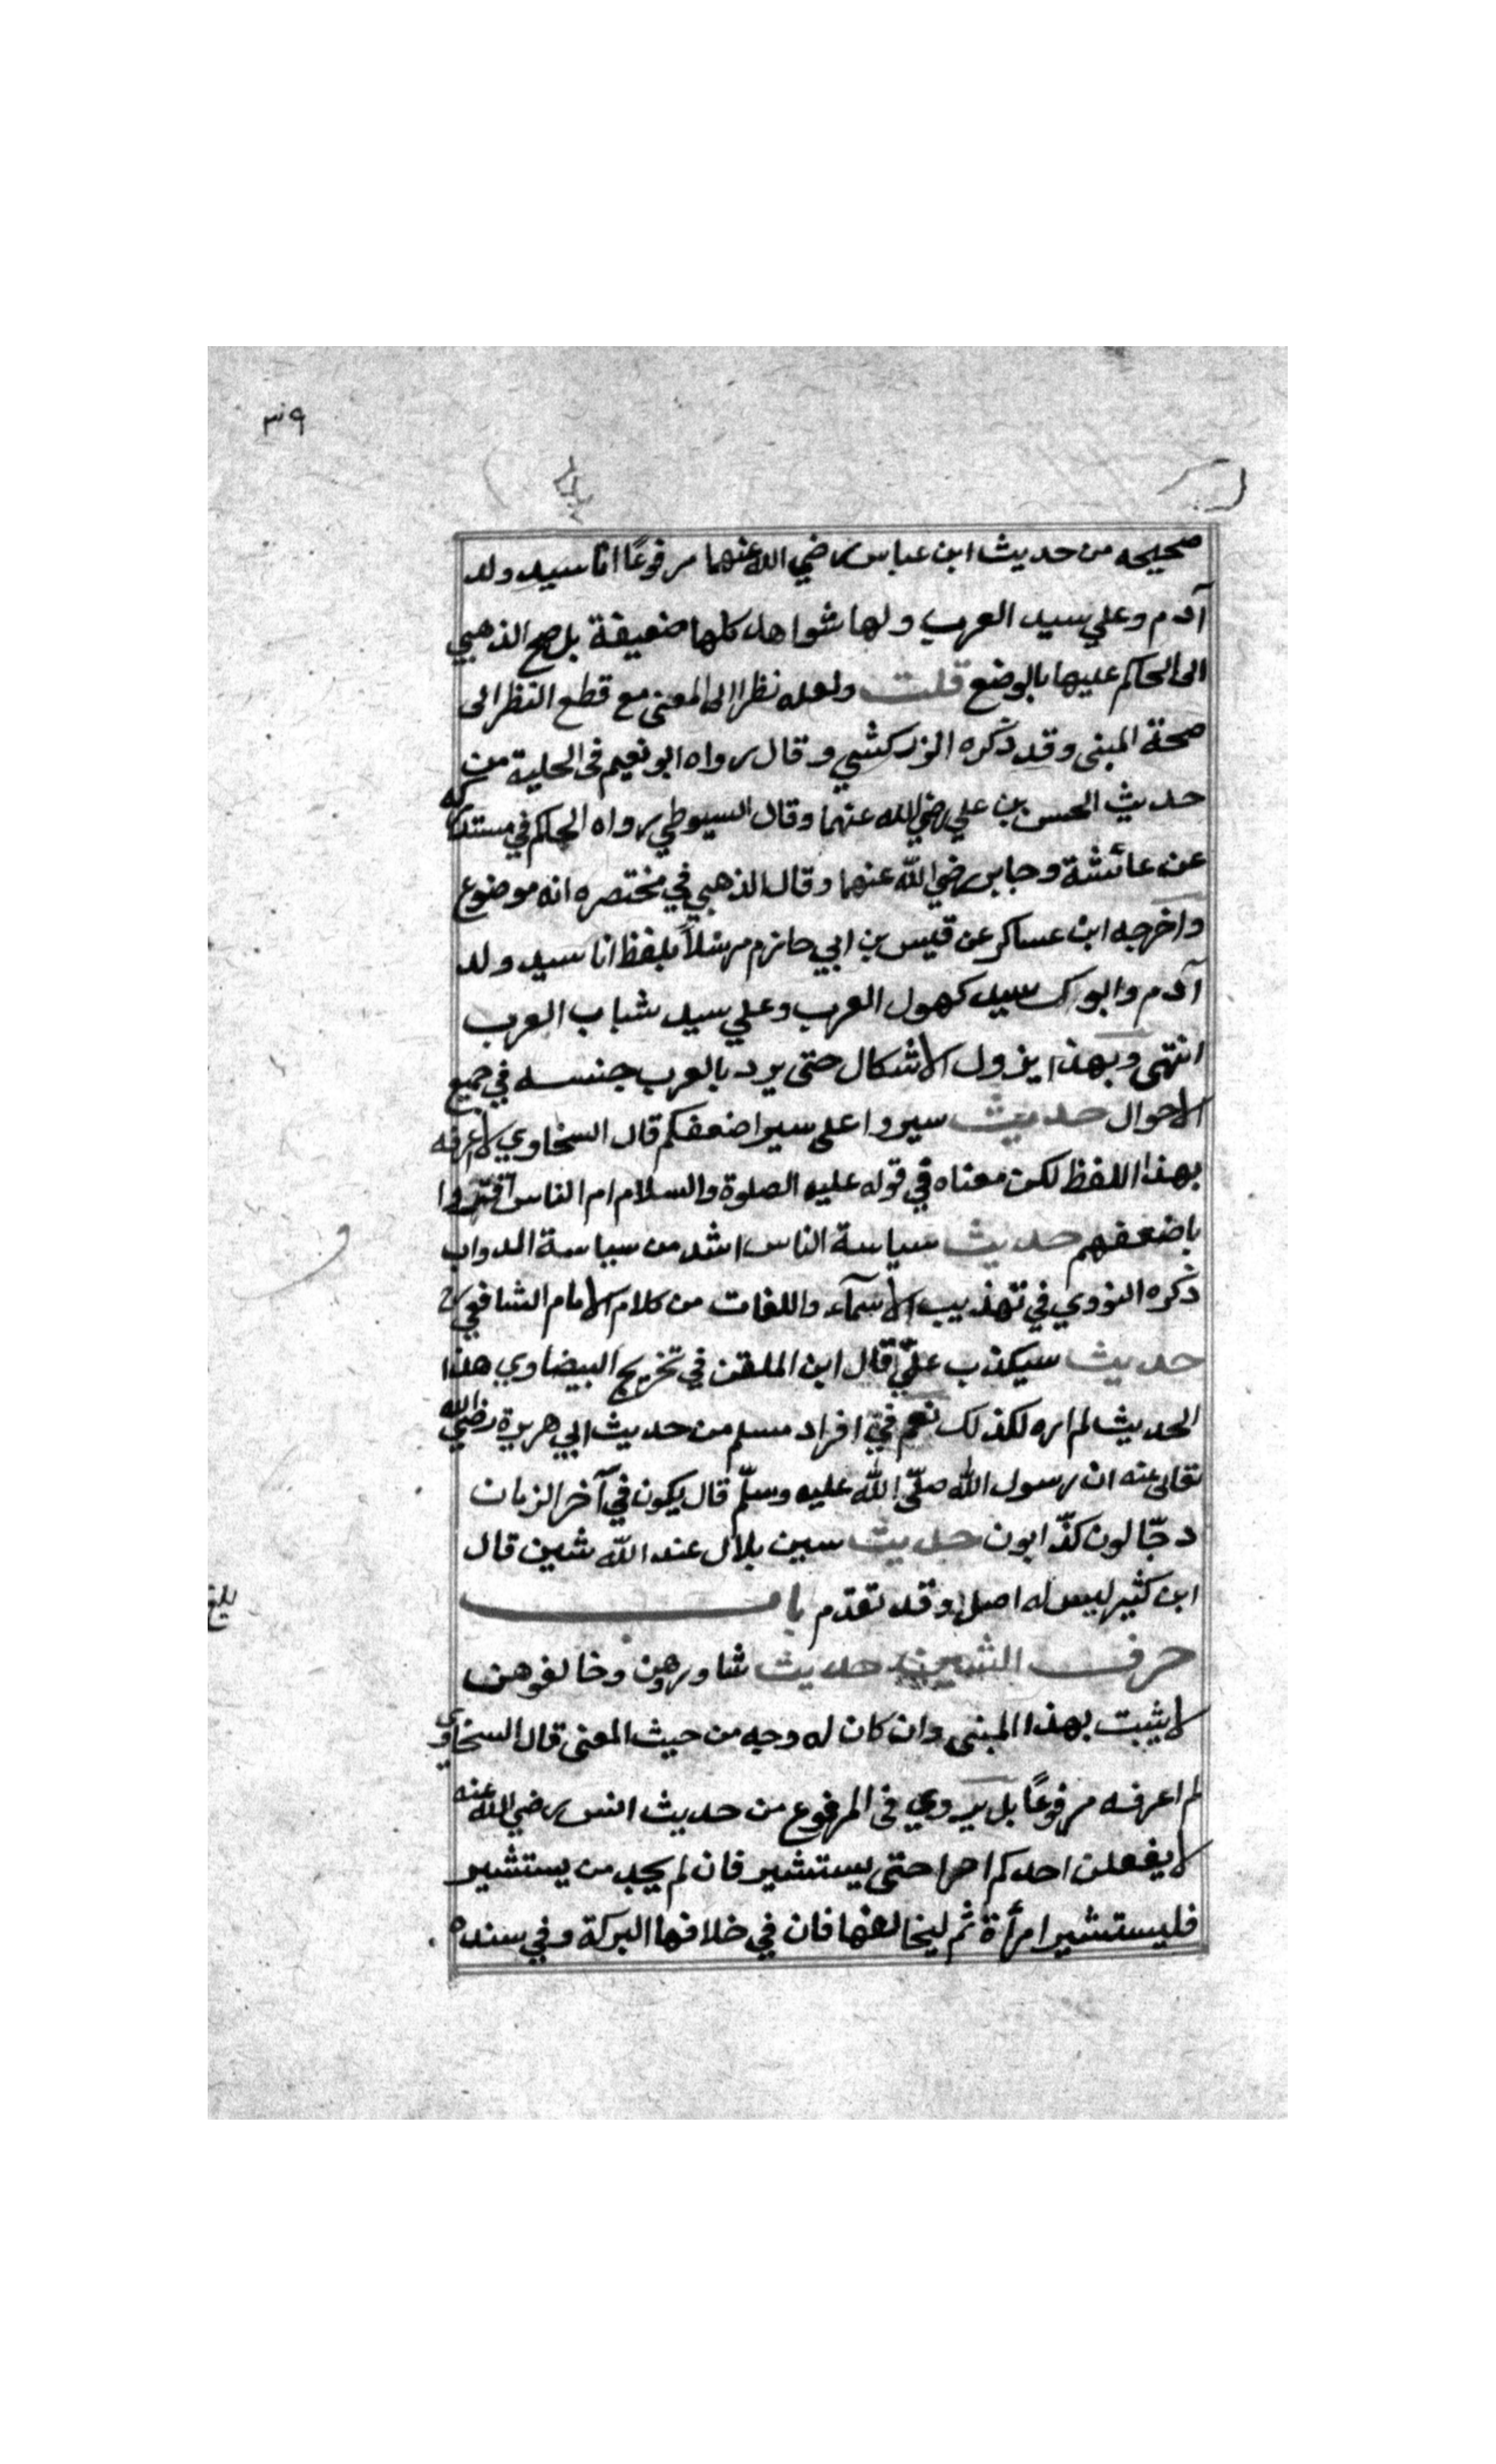 ٣٩
صحيحه من حديث ابن عباس رضي الله عنهما مرفوعًا انا سيد ولد
آدم وعلي سيد العرب ولها شواهد كلها ضعيفة بل جنح الذهبي
الى الحاكم عليها بالوضع قلت ولعله نظرا الى المعنى مع قطع النظر الى
صحة المبنى وقد ذكره الزركشي وقال رواه ابو نعيم فى الحلية من
حديث الحسن بن علي رضي الله عنهما وقال السيوطي رواه الحاكم في مستدركه
عن عائشة وجابر رضي الله عنهما وقال الذهبي في مختصره انه موضوع
واخرجه ابن عساكر عن قيس بن ابي حازم مرسلاً بلفظ انا سيد ولد
آدم وابوك سيد كهول العرب وعلي سيد شباب العرب
انتهى وبهذا يزول الاشكال حتى يرد بالعرب جنسه في جميع
الاحوال حديث سيروا على سير اضعفكم قال السخاوي لا اعرفه
بهذا اللفظ لكن معناه في قوله عليه الصلوة والسلام ام الناس
باضعفهم حديث سياسة الناس اشد من سياسة الدواب
ذكره النووي في تهذيب الاسمآء واللغات من كلام الامام الشافعي
حديث سيكذب عليّ قال ابن الملقن في تخريج البيضاوي هذا
الحديث لم اره لكذلك نعم في افراد مسلم من حديث ابي هريرة رضي الله
تعالى عنه ان رسول الله صلّى الله عليه وسلّم قال يكون في آخر الزمان
دجّالون كذّابون حديث سين بلال عند الله شين قال
ابن كثير ليس له اصل وقد تقدم باب
حرف الشين حديث شاوروهن وخالفوهن
لا يثبت بهذا المبنى وان كان له وجه من حيث المعنى قال السخاوي
لم اعرفه مرفوعًا بل يروي فى المرفوع من حديث انس رضي الله عنه
لا يفعلن احدكم امرا حتى يستشير فان لم يجد من يستشير
فليستشير امرأة ثم ليخالفها فان في خلافها البركة وفي سنده
بلغ